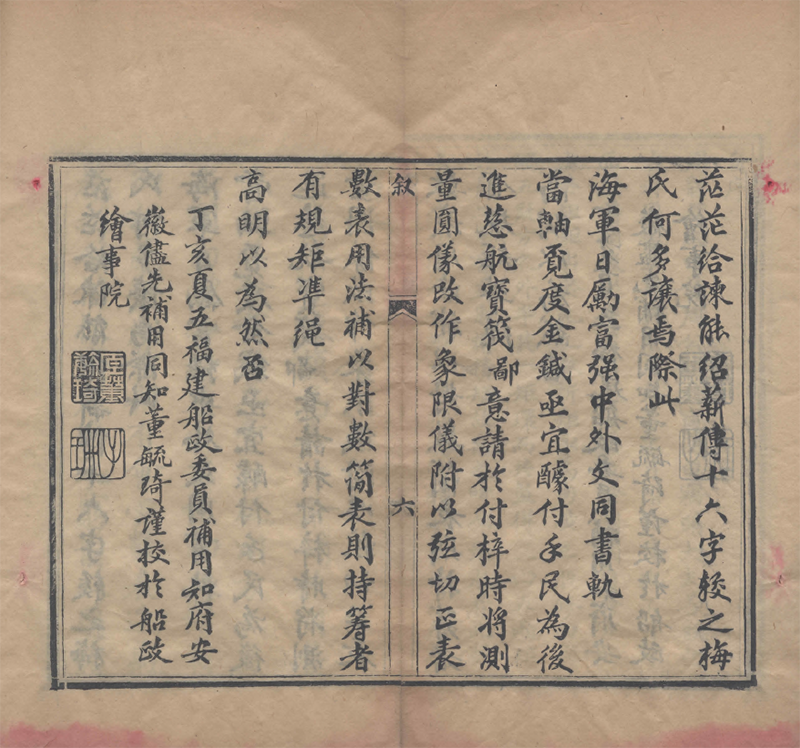 茫茫給諫能紹薪傳十六字較之梅
氏何多讓焉際此
海軍日勵富强中外文同書軌
當軸覓度金鍼亟宜醵付手民為後
進慈航寶筏鄙意請於付梓時將測
量圓儀改作象限儀附以弦切正表
叙
六
數表用法補以對數簡表則持籌者
有規矩準绳
高明以為然否
丁亥夏五福建船政委員補用知府安
徽儘先補用同知董毓琦謹校於船政
繪事院